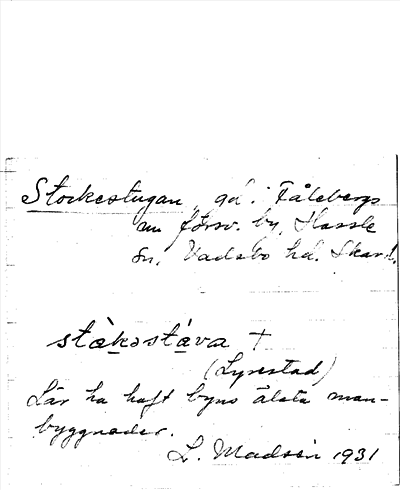 Stockestugan, gd i Fålebergs
nu försv. by, Hassle
sn, Vadsbo hd. Skarab.
stàkəstáva †
(Lyrestad)
Lär ha haft byns älsta man-
byggnader.
L. Madsén 1931